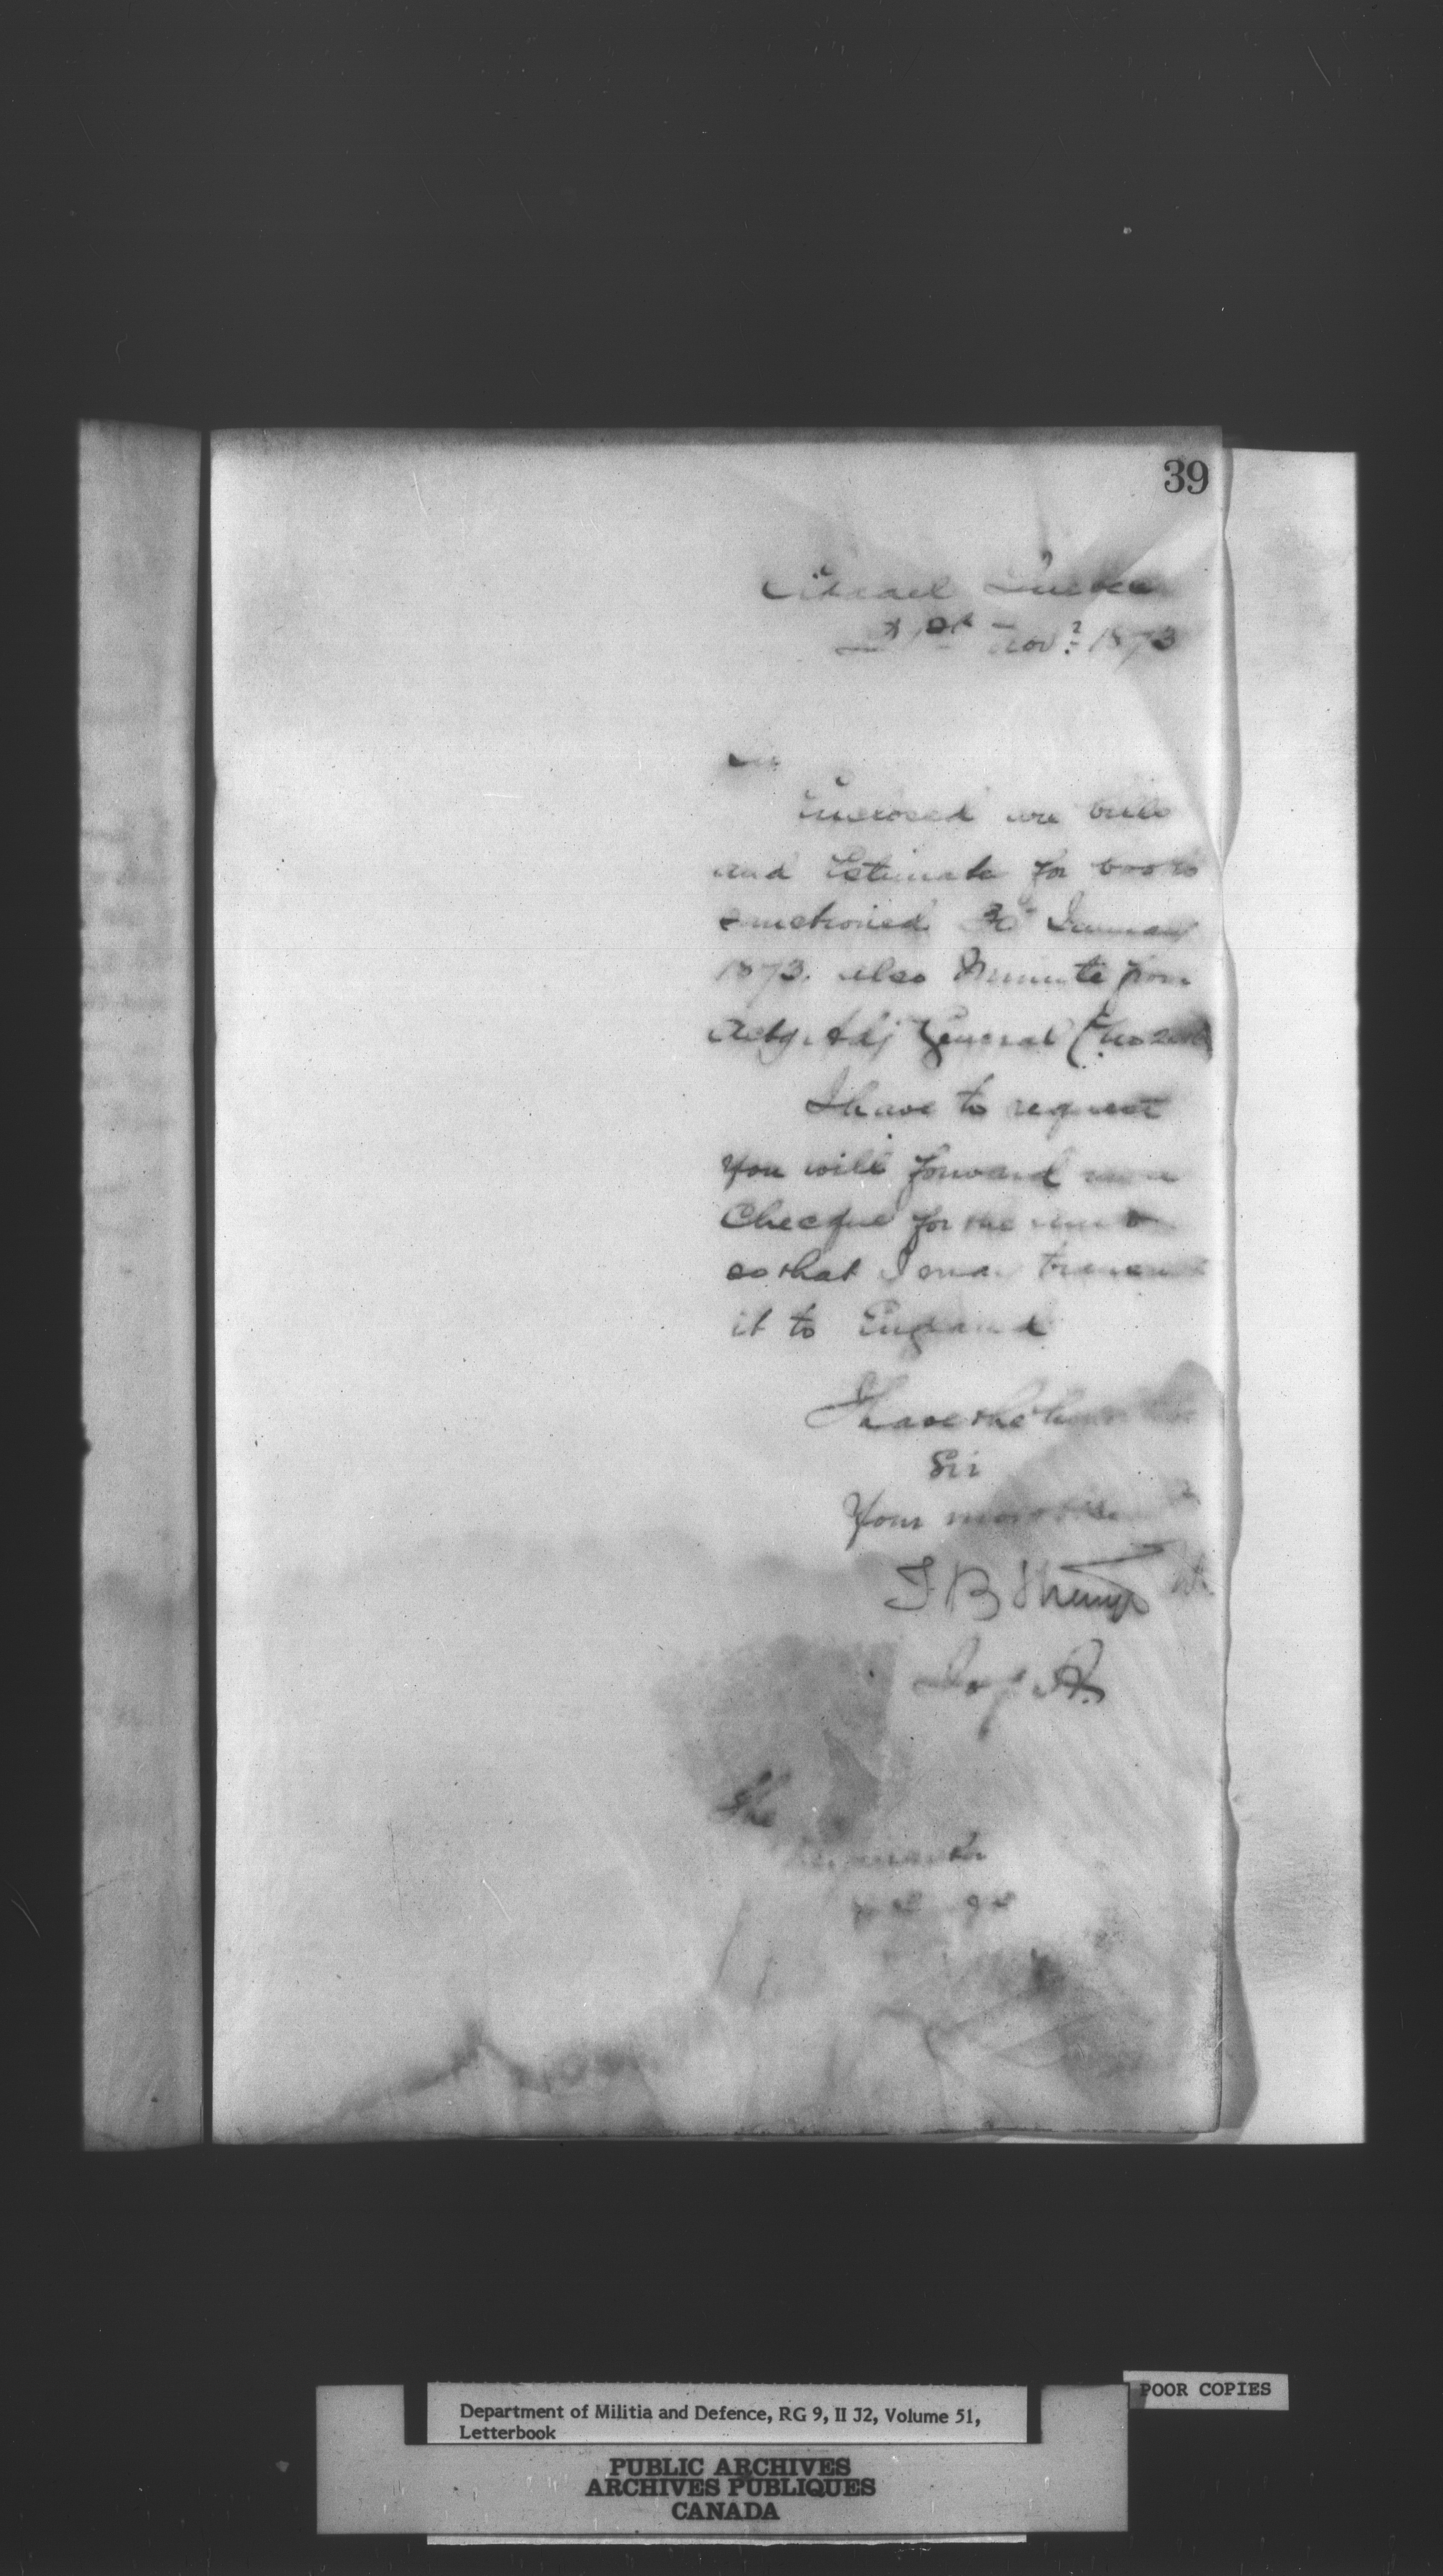 39
Citadel Quebec
21st Nov: 1873
Sir
Enclosed are bills
and Estimate for books
sanctioned January
1873. also Minute from
Actg. Adj General
I have to request
you will forward me a
Cheque for the
so that I may transmit
it to England
I have the honor
Sir
Your most
T B Strange
I of A.
The
POOR COPIES
Department of Militia and Defence, RG 9, II J2, Volume 51,
Letterbook
PUBLIC ARCHIVES
ARCHIVES PUBLIQUES
CANADA